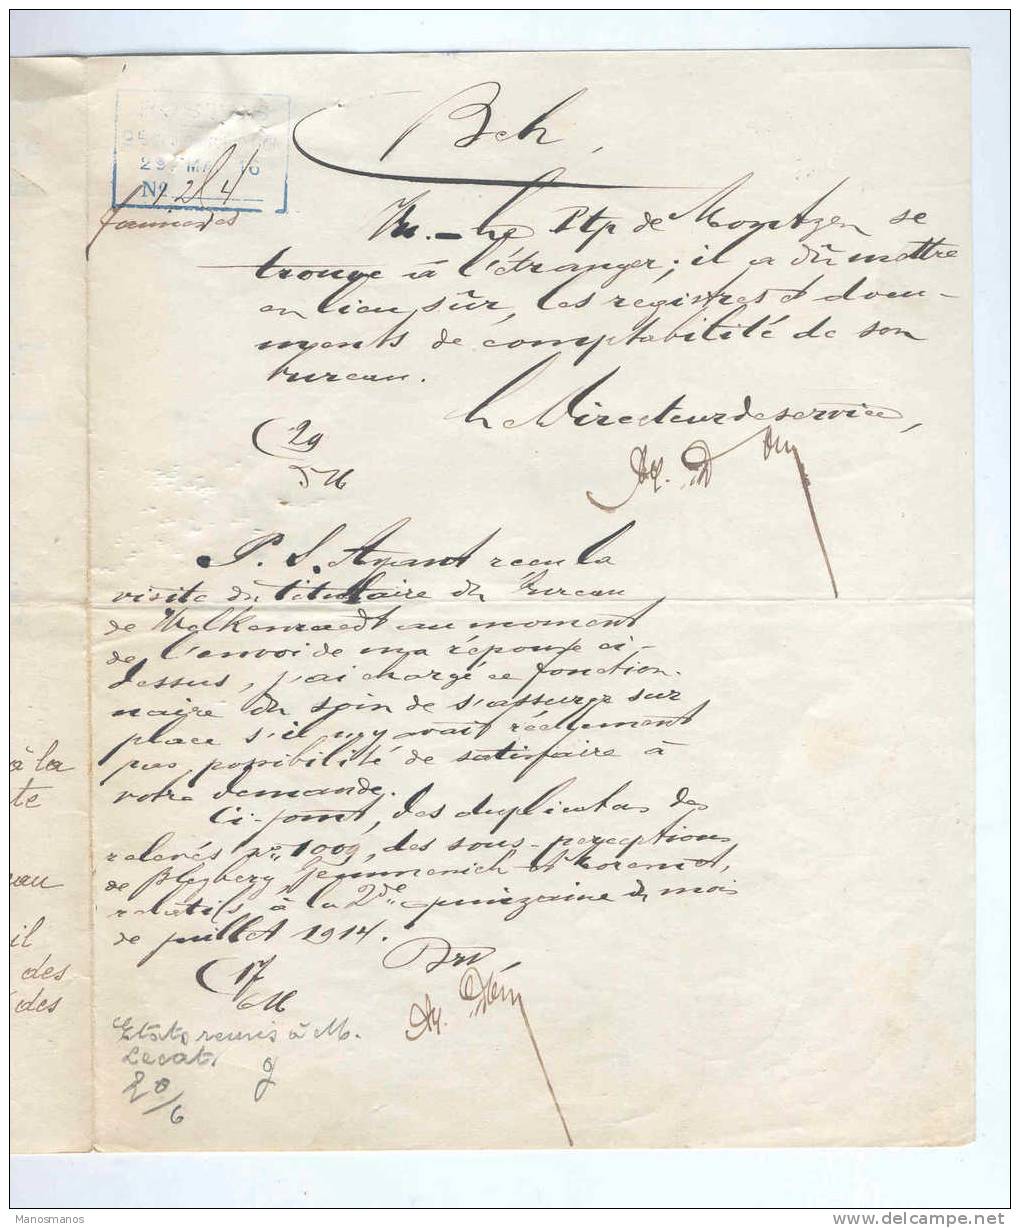 29 MA 16
No 284
annexes
Bch,
Vu. – Le Ptp de Montzen se
trouve à l'étranger; il a dû mettre
en lieu sûr, les registres et docu-
ments de comptabilité de son
bureau.
Le Directeur de service,
29
5 16
P. S. Ayant reçu la
visite du titulaire du bureau
de Welkenraedt au moment
de l'envoi de ma réponse ci-
dessus, j'ai chargé ce fonction-
naire du soin de s'assurer sur
place s'il n'y avait réellement
pas possibilité de satisfaire à
votre demande.
Ci-joint, des duplicatas des
relevés n° 1009, des sous-perceptions
de Bleyberg, Gemmenich et Moresnet,
relatifs à la 2de quinzaine du mois
de juillet 1914.
17
6 16
Etats remis à M.
Lecat.
20/6
à la
te
eau
il
des
des
Manosmanos
www.delcampe.net